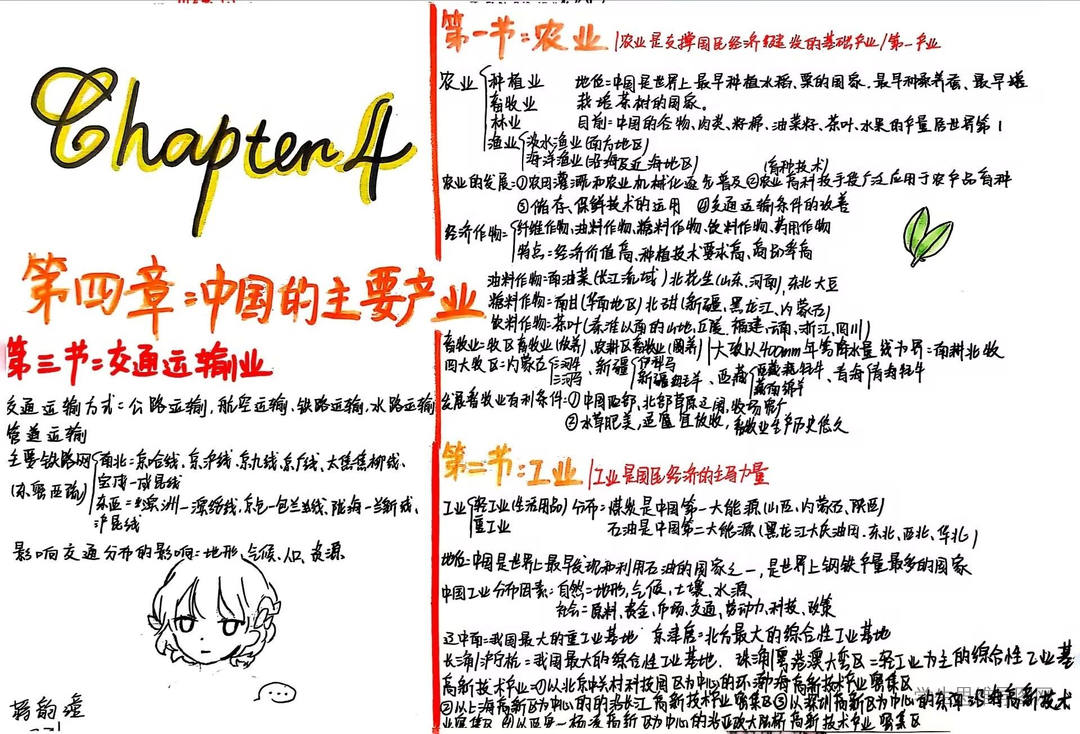 Chapter 4
第四章:中国的主要产业
第三节:交通运输业
交通运输方式:公路运输,航空运输、铁路运输,水路运输
管道运输
主要铁路网
南北:京哈线、京沪线、京九线、京广线、太焦焦柳线、
宝成一成昆线
一滨绥线,京包一包兰线,陇海一兰新线、
沪昆线
影响交通分布的影响:地形、气候、人口、资源
第一节:农业
农业是支撑国民经济建设的基础产业/第一产业
农业
种植业
畜牧业
林业
渔业
淡水渔业(南方地区)
海洋渔业(沿海及近海地区)
地位:中国是世界上最早种植水稻、粟的国家、最早种养蚕、最早培
栽培茶树的国家。
目前:中国的谷物、肉类、籽棉、油菜籽、茶叶、水果的产量居世界第1
(育种技术)
农业的发展:①农田灌溉和农业机械化逐步普及②农业高科技手段广泛应用于农产品育种
③储存、保鲜技术的运用 ④交通运输条件的改善
经济作物:
纤维作物、油料作物、糖料作物、饮料作物、药用作物
特点:经济价值高、种植技术要求高、商品率高
油料作物:南油菜(长江流域)北花生(山东、河南),东北大豆
糖料作物:南甘(华南地区)北甜(新疆,黑龙江、内蒙古)
饮料作物:茶叶(秦淮以南的山地、丘陵,福建、云南、浙江、四川)
畜牧业:牧区畜牧业(放养)、农耕区畜牧业(圈养)
大致以400mm年等降水量线为界:南耕北牧
四大牧区:内蒙古
三河牛
三河马
、新疆
伊犁马
新疆细毛羊
、西藏
、青海
发展畜牧业有利条件:①中国西部、北部草原辽阔,牧场宽广
②水草肥美,适宜放牧,畜牧业生产历史悠久
第二节:工业
工业是国民经济的主导力量
工业
轻工业(生活用品)
重工业
分布:煤炭是中国第一大能源(山西、内蒙古、陕西)
石油是中国第二大能源(黑龙江大庆油田、东北、西北、华北)
地位:中国是世界上最早发现和利用石油的国家之一,是世界上钢铁产量最多的国家
中国工业分布因素:自然:地形,气候,土壤、水源
社会:原料、资金、市场、交通、劳动力、科技、政策
辽中南:我国最大的重工业基地 京津唐:北方最大的综合性工业基地
长三角/沪宁杭:我国最大的综合性工业基地. 珠三角/粤港澳大湾区:轻工业为主的综合性工业基
高新技术产业:①以北京中关村科技园区为中心的环渤海高新技术产业密集区
②以上海高新区为中心的沿长江高新技术产业密集区③以深圳高新区为中心的东南沿海高新技术
业密集区④以西安一杨凌高新区为中心的沿亚欧大陆桥高新技术产业密集区